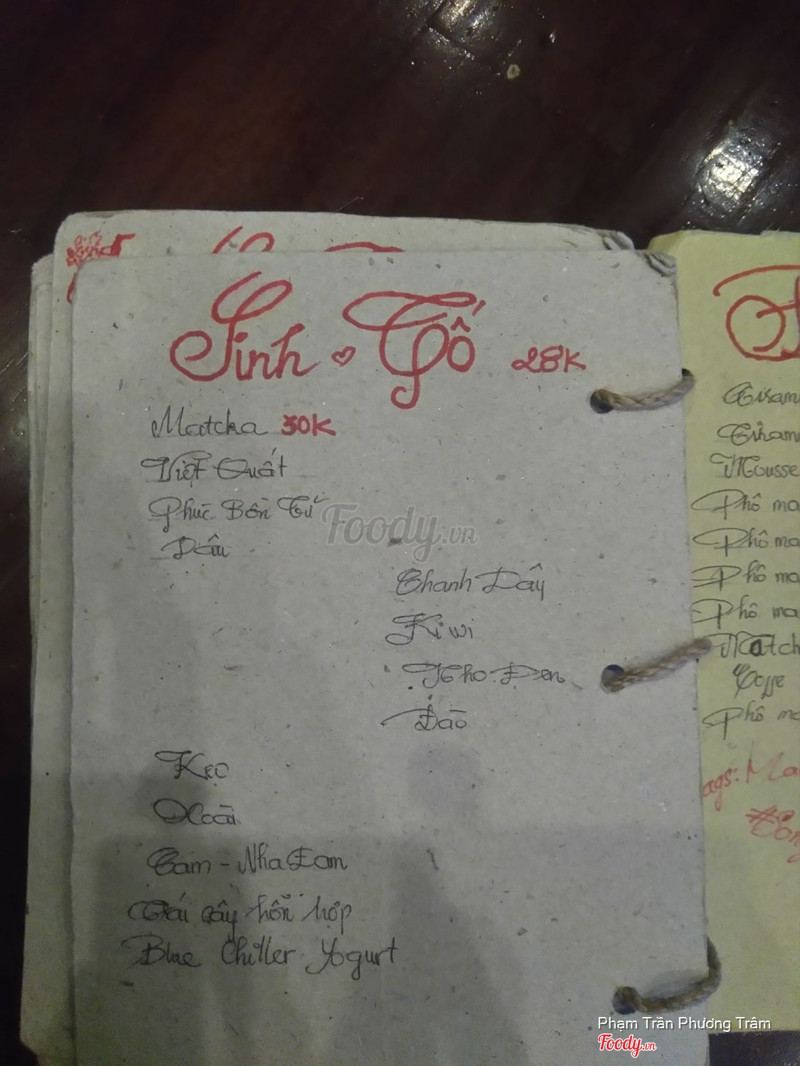 Sinh Tố 28K
Matcha 30K
Việt Quất
Phúc Bồn Tử
Dâu
Chanh Dây
Kiwi
Nho Đen
Đào
Kẹo
Xoài
Cam - Nha Đam
Trái cây hỗn hợp
Blue Chiller Yogurt
Mousse
Phô ma
Phô ma
Phô ma
Phô ma
Match
Phô ma
Foody.VN
Phạm Trần Phương Trâm
Foody.vn